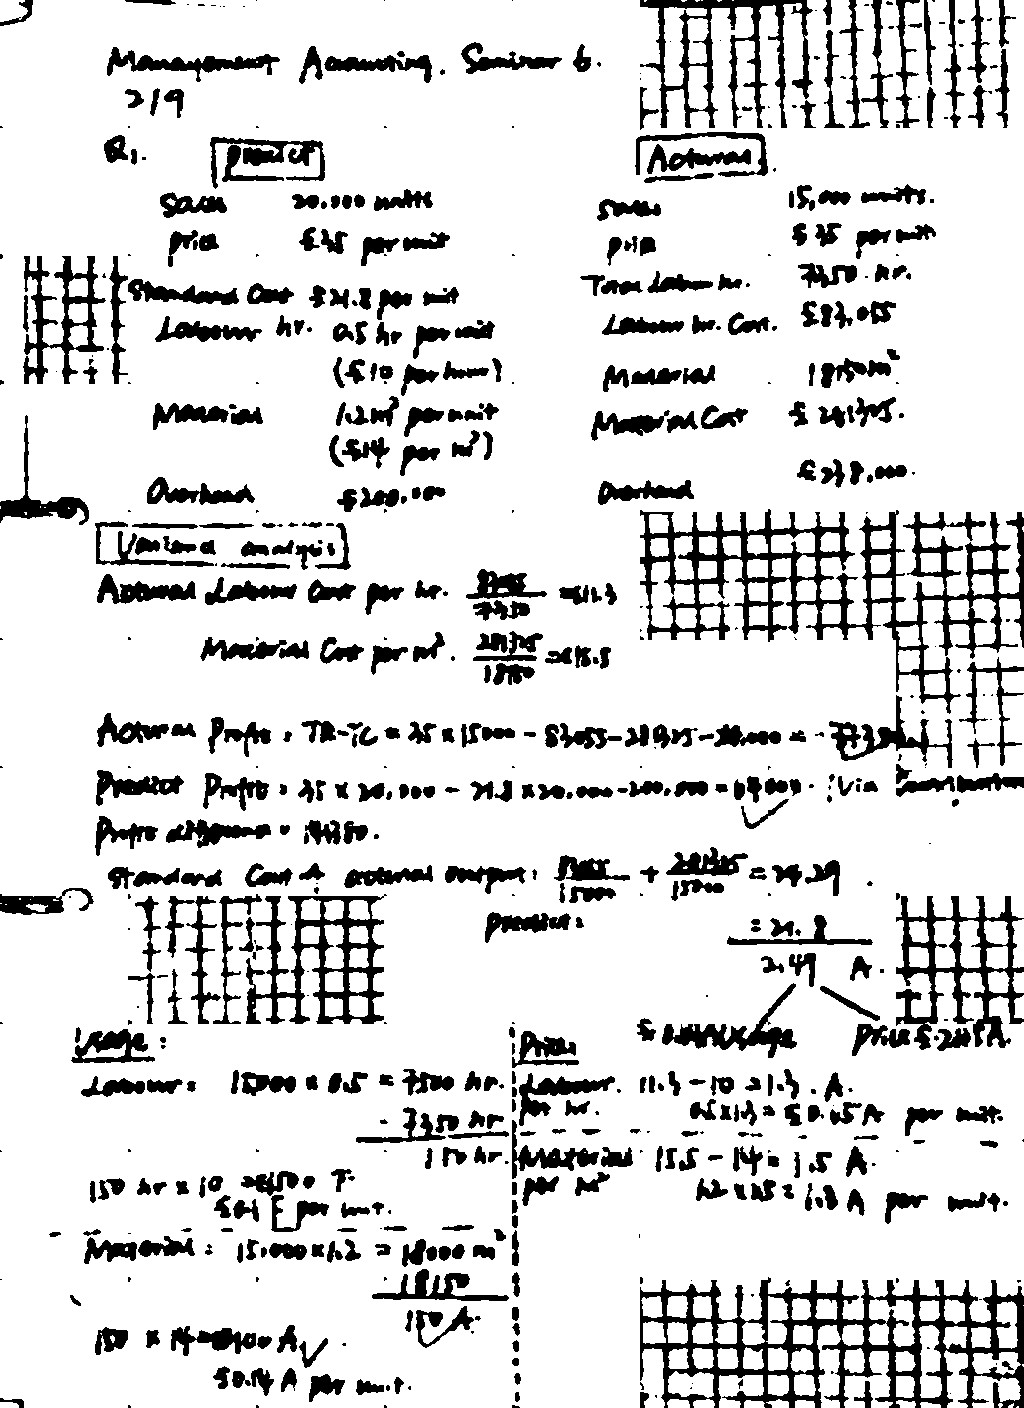 Management Accounting. Seminar 6.
2/9
Q1. Predict
Actural
Sales 20.000 units
price £35 per unit
Standard Cost £21.8 per unit
Labour hr. 0.5 hr per unit
(£10 per hour)
Material 1.2m² per unit
(£14 per m²)
Overhead £200.000
Sales 15,000 units.
price £35 per unit
Total Labour hr. 7350 hr.
Labour hr. Cost. £83,055
Material 18150m²
Material Cost £281325.
Overhead £238,000.
analysis
Actural Labour Cost per hr. 83055/7350 = £11.3
Material Cost per m². 281325/18150 = £15.5
Actural Profit: TR-TC = 35 × 15000 - 83055 - 281325 - 238,000 = -77380
Predict Profit: 35 × 20,000 - 21.8 × 20.000 - 200.000 = 64000. Via
Profit difference = 141380.
Standard Cost actural output: 83055/15000 + 281325/15000 = 24.29
Predict: = 21.8
2.49 A.
Usage price £2.45 A
Usage:
Labour: 15000 × 0.5 = 7500 hr.
- 7350 hr
150 hr.
150 hr × 10 = £1500 F.
£0.1 F per unit.
Material: 15.000 × 1.2 = 18000 m²
18150
150 A.
150 × 14 = 2100 A
£0.14 A per unit.
Price:
Labour. 11.3 - 10 = 1.3. A.
per hr. 0.5×1.3 = £0.65 A per unit.
Material 15.5 - 14 = 1.5 A.
per m² 1.2 × 1.5 = 1.8 A per unit.